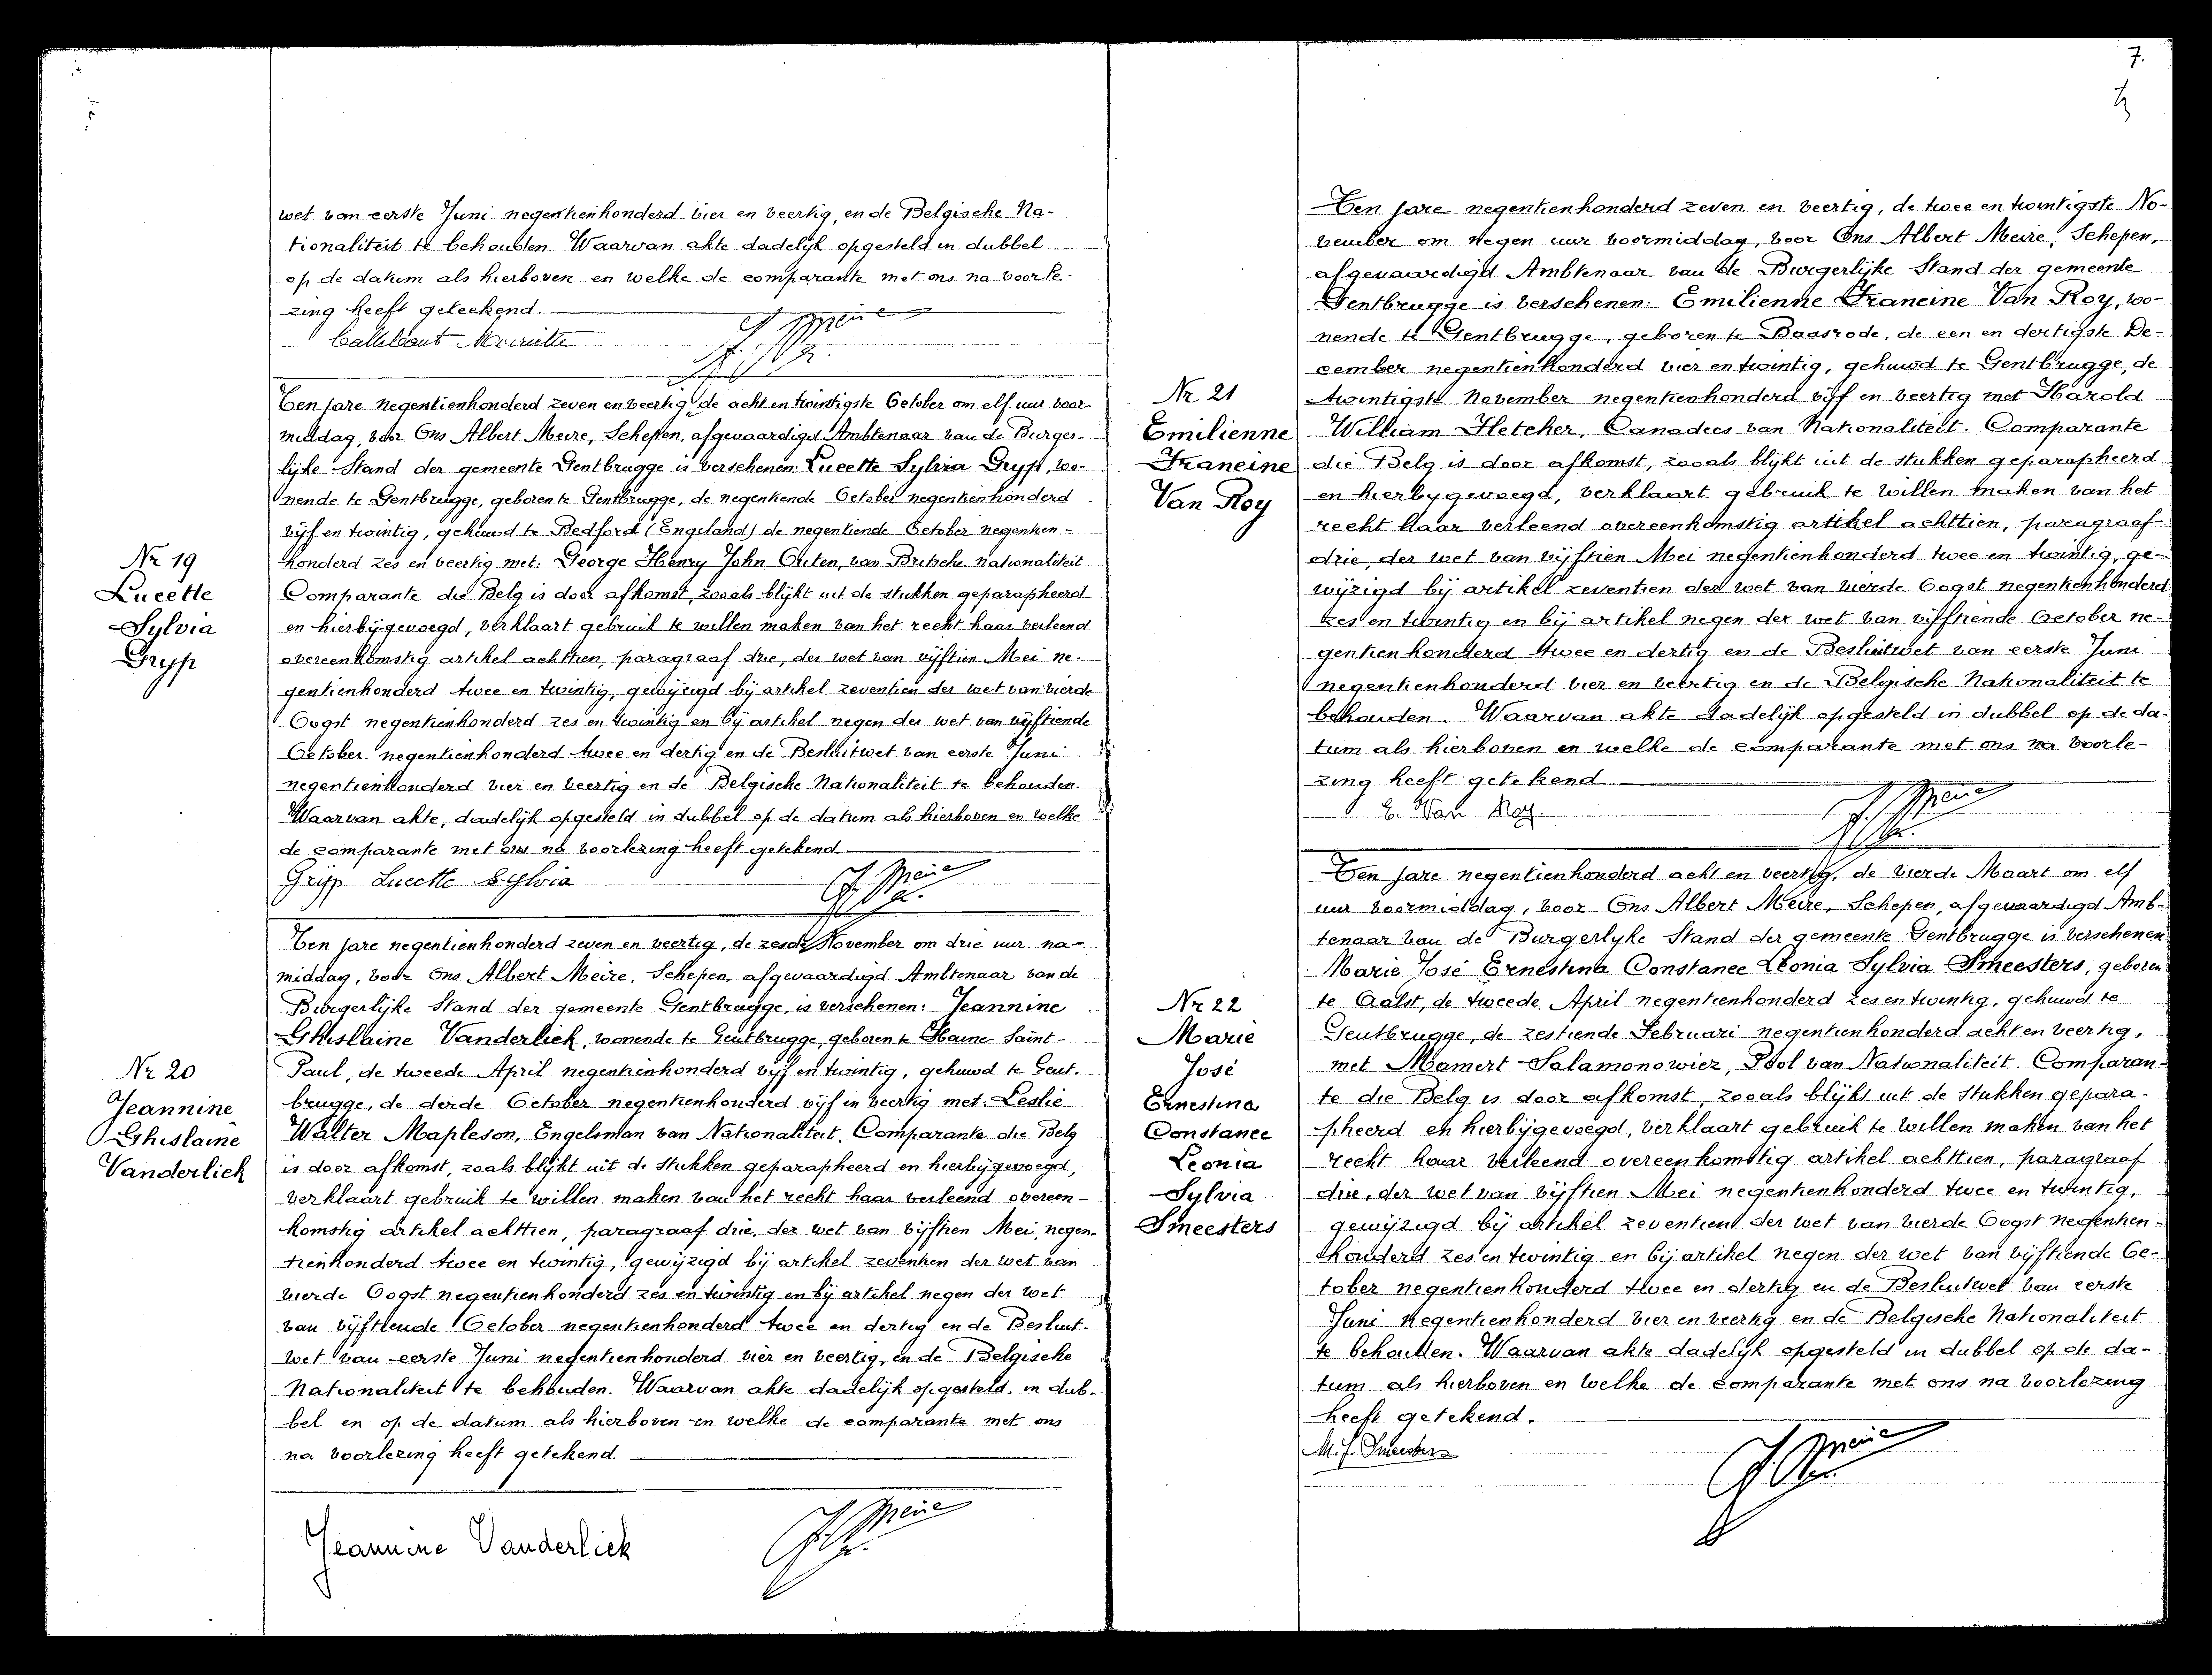 wet van eerste Juni negentienhonderd vier en veertig, en de Belgische Na-
tionaliteit te behouden. Waarvan akte dadelijk opgesteld in dubbel
op de datum als hierboven en welke de comparante met ons na voorle-
zing heeft geteekend.
Callebaut Mariette
Nr 19
Lucette
Sylvia
Gryp
Ten jare negentienhonderd zeven en veertig, de acht en twintigste October om elf uur voor-
middag, voor Ons Albert Meire, Schepen, afgevaardigd Ambtenaar van de Burger-
lijke Stand der gemeente Gentbrugge is verschenen: Lucette Sylvia Gryp, wo-
nende te Gentbrugge, geboren te Gentbrugge, de negentiende October negentienhonderd
vijf en twintig, gehuwd te Bedford (Engeland) de negentiende October negentien-
honderd zes en veertig met: George Henry John Outen, van Britsche nationaliteit
Comparante die Belg is door afkomst, zooals blijkt uit de stukken geparapheerd
en hierbijgevoegd, verklaart gebruik te willen maken van het recht haar verleend
overeenkomstig artikel achttien, paragraaf drie, der wet van vijftien Mei ne-
gentienhonderd twee en twintig, gewijzigd bij artikel zeventien der wet van vierde
Oogst negentienhonderd zes en twintig en bij artikel negen der wet van vijftiende
October negentienhonderd twee en dertig en de Besluitwet van eerste Juni
negentienhonderd vier en veertig en de Belgische Nationaliteit te behouden.
Waarvan akte, dadelijk opgesteld in dubbel op de datum als hierboven en welke
de comparante met ons na voorlezing heeft getekend.
Gryp Lucette Sylvia
A. Meire
Nr 20
Jeannine
Ghislaine
Vanderlick
Ten jare negentienhonderd zeven en veertig, de zesde November om drie uur na-
middag, voor Ons Albert Meire, Schepen, afgevaardigd Ambtenaar van de
Burgerlijke Stand der gemeente Gentbrugge, is verschenen: Jeannine
Ghislaine Vanderlick, wonende te Gentbrugge, geboren te Haine-Saint-
Paul, de tweede April negentienhonderd vijf en twintig, gehuwd te Gent-
brugge, de derde October negentienhonderd vijf en veertig met: Leslie
Walter Mapleson, Engelsman van Nationaliteit. Comparante die Belg
is door afkomst, zoals blijkt uit de stukken geparapheerd en hierbijgevoegd,
verklaart gebruik te willen maken van het recht haar verleend overeen-
komstig artikel achttien, paragraaf drie, der wet van vijftien Mei, negen-
tienhonderd twee en twintig, gewijzigd bij artikel zeventien der wet van
vierde Oogst negentienhonderd zes en twintig en bij artikel negen der wet
van vijftiende October negentienhonderd twee en dertig en de Besluit-
wet van eerste Juni negentienhonderd vier en veertig, en de Belgische
Nationaliteit te behouden. Waarvan akte dadelijk opgesteld, in dub-
bel en op de datum als hierboven en welke de comparante met ons
na voorlezing heeft getekend.
Jeannine Vanderlick
A. Meire
7.
Nr 21
Emilienne
Francine
Van Roy
Ten jare negentienhonderd zeven en veertig, de twee en twintigste No-
vember om negen uur voormiddag, voor Ons Albert Meire, Schepen,
afgevaardigd Ambtenaar van de Burgerlijke Stand der gemeente
Gentbrugge is verschenen: Emilienne Francine Van Roy, wo-
nende te Gentbrugge, geboren te Baasrode, de een en dertigste De-
cember negentienhonderd vier en twintig, gehuwd te Gentbrugge, de
twintigste November negentienhonderd vijf en veertig met Harold
William Fletcher, Canadees van Nationaliteit. Comparante
die Belg is door afkomst, zooals blijkt uit de stukken geparapheerd
en hierbijgevoegd, verklaart gebruik te willen maken van het
recht haar verleend overeenkomstig artikel achttien, paragraaf
drie, der wet van vijftien Mei negentienhonderd twee en twintig, ge-
wijzigd bij artikel zeventien der wet van vierde Oogst negentienhonderd
zes en twintig en bij artikel negen der wet van vijftiende October ne-
gentienhonderd twee en dertig en de Besluitwet van eerste Juni
negentienhonderd vier en veertig en de Belgische Nationaliteit te
behouden. Waarvan akte dadelijk opgesteld in dubbel op de da-
tum als hierboven en welke de comparante met ons na voorle-
zing heeft getekend.
E. Van Roy.
A. Meire
Nr 22
Marie
José
Ernestina
Constance
Leonia
Sylvia
Smeesters
Ten jare negentienhonderd acht en veertig, de vierde Maart om elf
uur voormiddag, voor Ons Albert Meire, Schepen, afgevaardigd Amb-
tenaar van de Burgerlyke Stand der gemeente Gentbrugge is verschenen
Marie José Ernestina Constance Leonia Sylvia Smeesters, geboren
te Aalst, de tweede April negentienhonderd zes en twintig, gehuwd te
Gentbrugge, de zestiende Februari negentienhonderd acht en veertig,
met Mamert Salamonowicz, Pool van Nationaliteit. Comparan-
te die Belg is door afkomst, zooals blijkt uit de stukken gepara-
pheerd en hierbijgevoegd, verklaart gebruik te willen maken van het
recht haar verleend overeenkomstig artikel achttien, paragraaf
drie, der wet van vijftien Mei negentienhonderd twee en twintig,
gewijzigd bij artikel zeventien der wet van vierde Oogst negentien-
honderd zes en twintig en bij artikel negen der wet van vijftiende Oc-
tober negentienhonderd twee en dertig en de Besluitwet van eerste
Juni negentienhonderd vier en veertig en de Belgische Nationaliteit
te behouden. Waarvan akte dadelijk opgesteld in dubbel op de da-
tum als hierboven en welke de comparante met ons na voorlezing
heeft getekend.
M. J. Smeesters
A. Meire